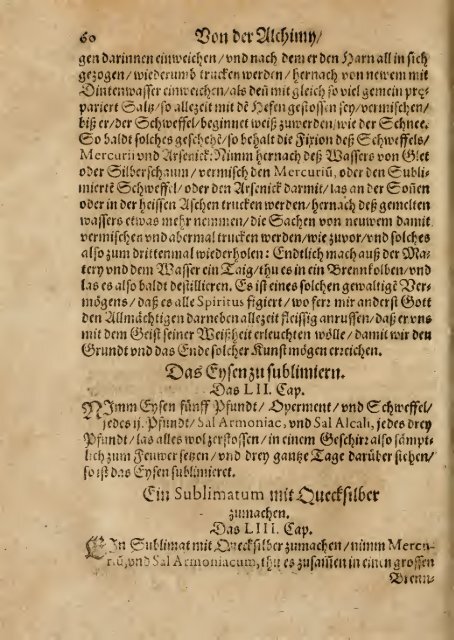 60 Von der Alchimy/
gen darinnen einweichen/vnd nach dem er den Harn all in sich
gezogen/wiederumb trucken werden/hernach von newem mit
Dintenwasser einweichen/als deñ mit gleich so viel gemein pre-
pariert Saltz/so allezeit mit dē Hefen gestossen sey/vermischen/
biß er/der Schweffel/beginnet weiß zuwerden/wie der Schnee.
So baldt solches geschehē/so behalt die Fixion deß Schweffels/
Mercurii vnd Arsenick: Nimm hernach deß Wassers von Glet
oder Silberschaum/vermisch den Mercuriū, oder den Subli-
miertē Schweffel/oder den Arsenick darmit/las an der Soñen
oder in der heissen Aschen trucken werden/hernach deß gemelten
wassers etwas mehr nemmen/die Sachen von neuwem damit
vermischen vnd abermal trucken werden/wie zuvor/vnd solches
also zum drittenmal wiederholen: Endtlich mach auß der Ma-
tery vnd dem Wasser ein Taig/thu es in ein Brennkolben/vnd
las es also baldt destillieren. Es ist eines solchen gewaltigē Ver-
mögens/daß es alle Spiritus figiert/wo ferr mir anderst Gott
den Allmächtigen darneben allezeit fleissig anruffen/daß er vns
mit dem Geist seiner Weißheit erleuchten wölle/damit wir den
Grundt vnd das Ende solcher Kunst mögen erreichen.
Das Eysen zu sublimiern.
Das LII. Cap.
NImm Eysen fünff Pfundt/Operment/vnd Schweffel/
jedes ij. Pfundt/Sal Armoniac, vnd Sal Alcali, jedes drey
Pfundt/las alles wol zerstossen/in einem Geschirz also sämpt-
lich zum Feuwer setzen/vnd drey gantze Tage darüber stehen/
so ist das Eysen sublimieret.
Ein Sublimatum mit Quecksilber
zumachen.
Das LIII. Cap.
EIn Sublimat mit Quecksilber zumachen/nimm Mercu-
riū, vnd Sal Armoniacum, thu es zusam̃en in einen grossen
Brenn-